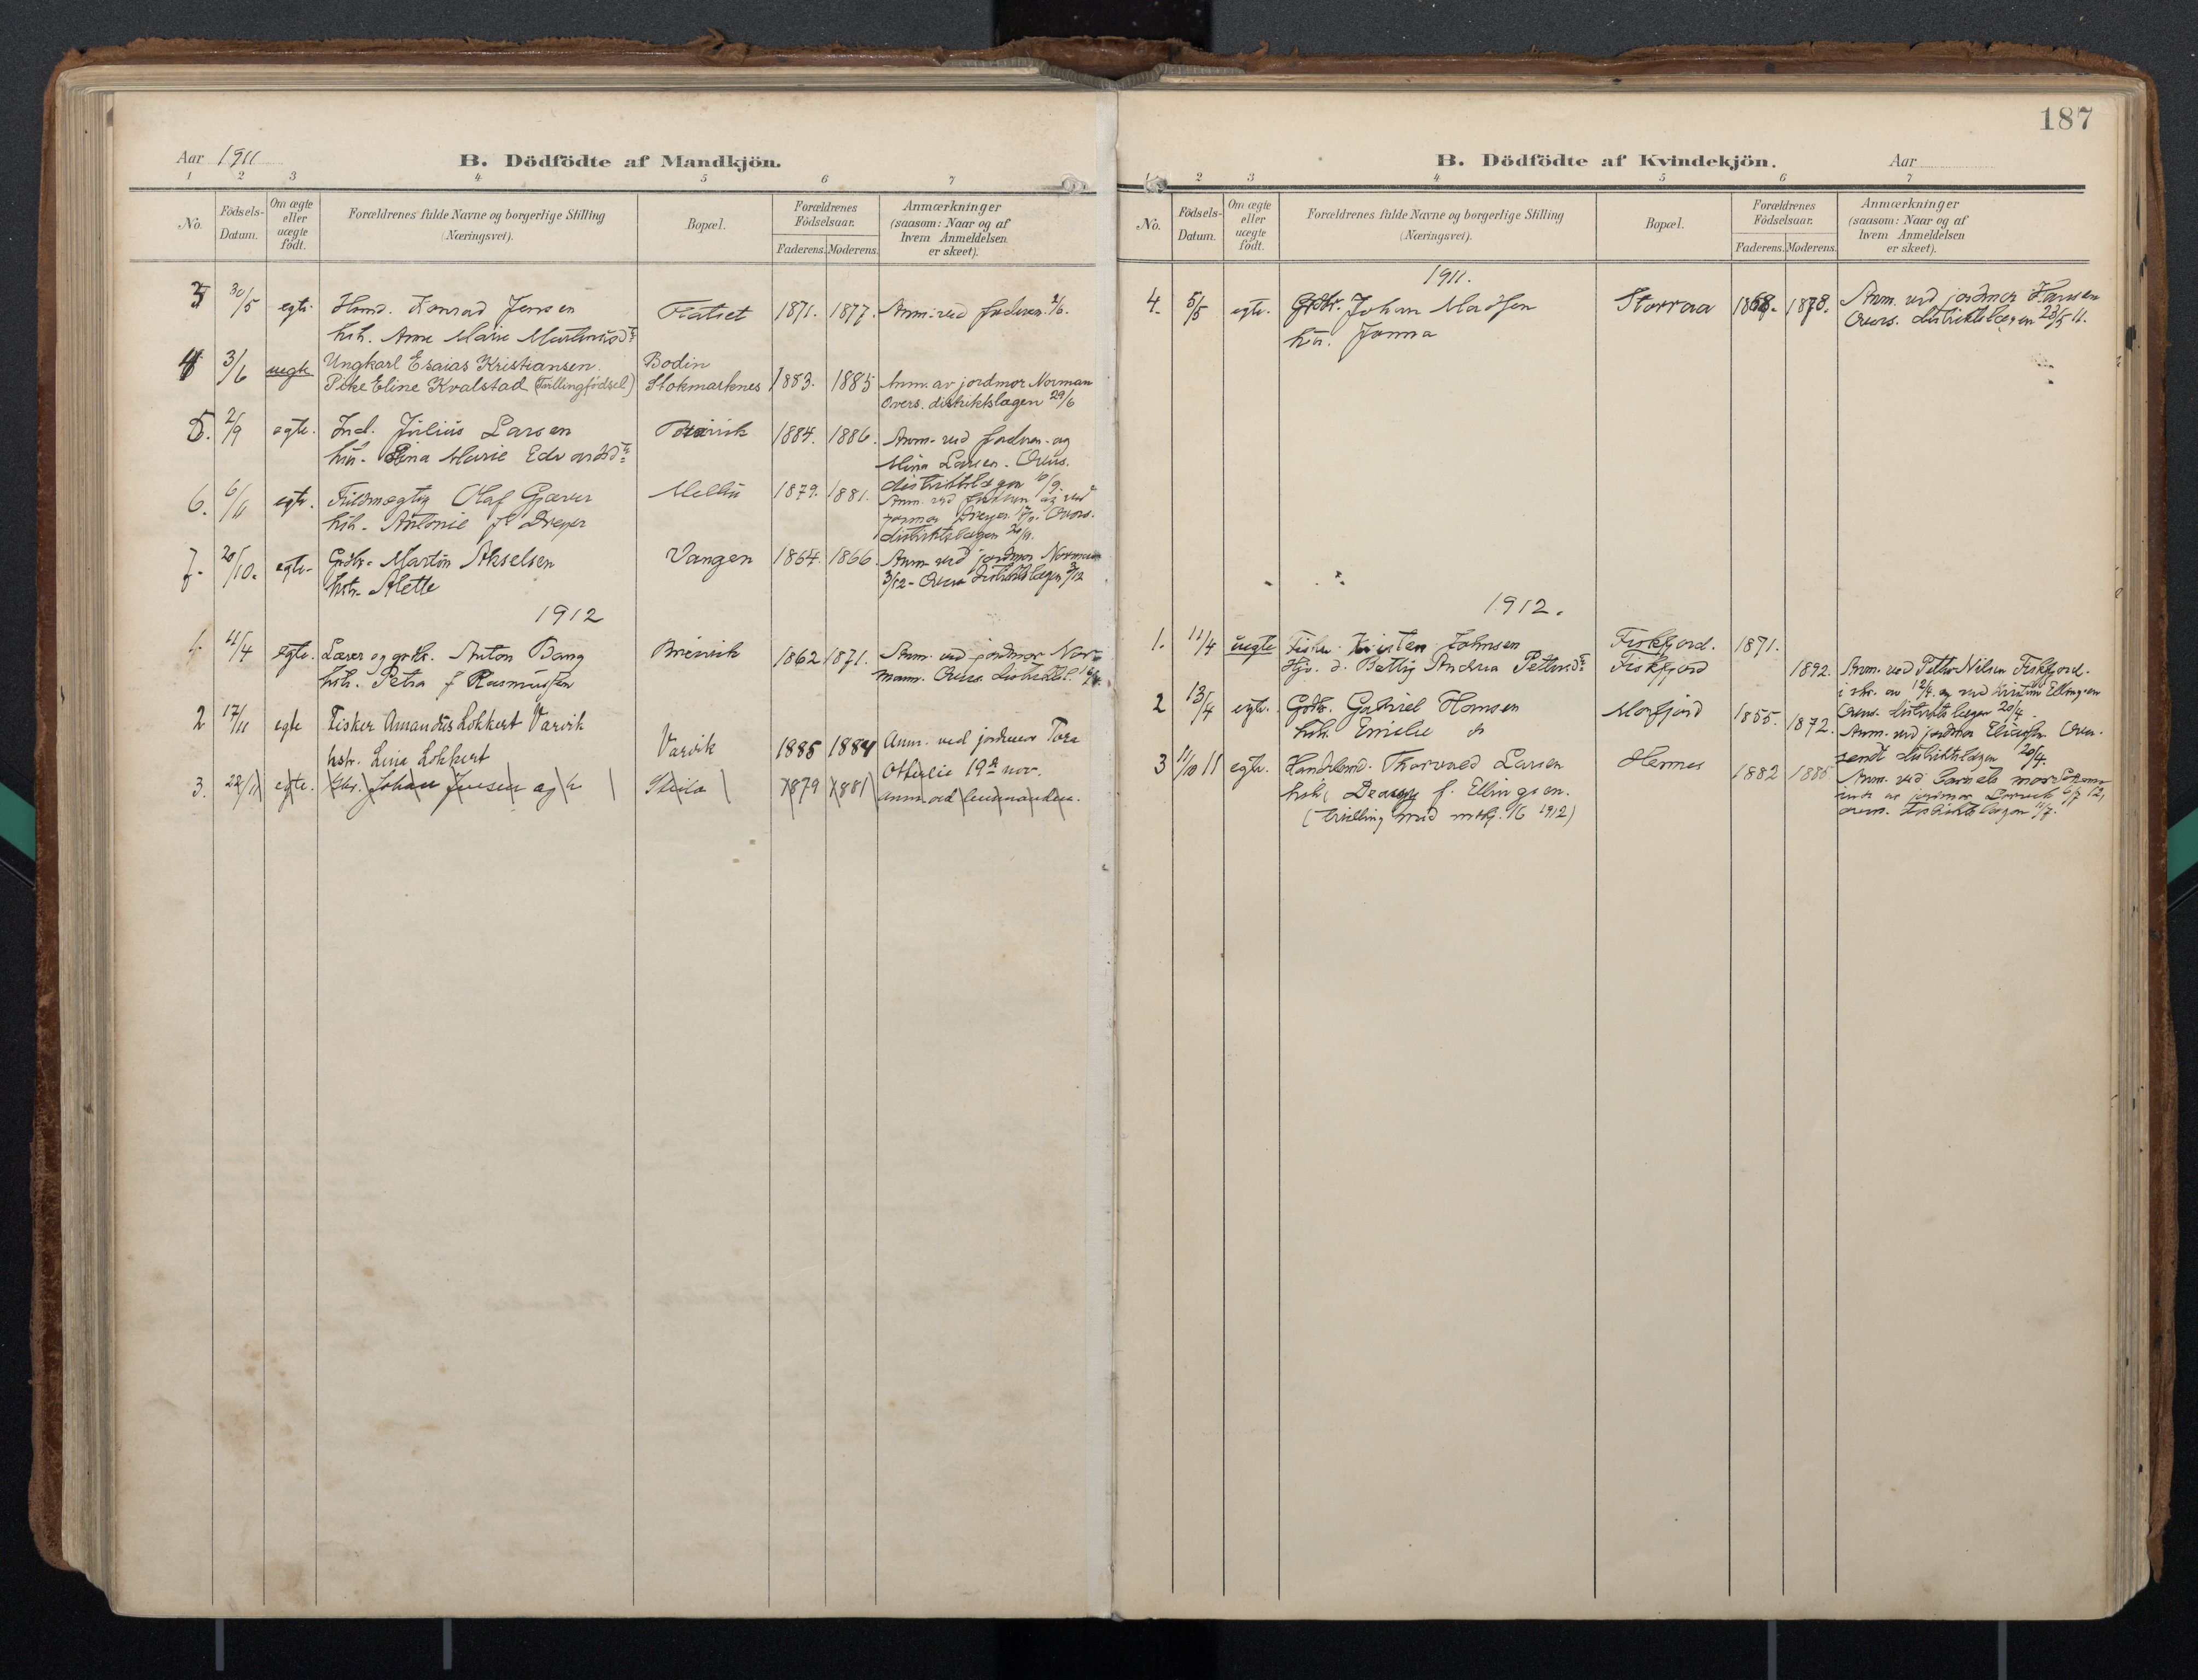 187
Aar 1911
B. Dödfödte af Mandkjön.
1 2 3 4 5 6 7
No.
Födsels-Datum.
Om ægte eller uægte födt.
Forældrenes fulde Navne og borgerlige Stilling (Næringsvei).
Bopæl.
Forældrenes Födselsaar.
Faderens. Moderens.
Anmærkninger (saasom: Naar og af hvem Anmeldelsen er skeet).
3 30/5 egte. Hmd. Konrad Jensen Flatset 1871. 1877. Anm. ved faderen 2/6.
hst. Anne Marie Martinusdtr
4 3/6 uegte Ungkarl Esaias Kristiansen. Bodin
Pike Eline Kvalstad (Tvillingfødsel) Stokmarknes 1883. 1885 Anm. av jordmor Norman
Overs. distriktslægen 29/6
5. 2/9 egte. Ind. Julius Larsen 1884. 1886. Anm. ved faderen og
Marie Edvardsdtr Mina Larsen. Overs.
distriktslægen
6. 6/11 egte. Fuldmægtig Olaf Gjæver Melbu 1879. 1881. Anm. ved faderen og ved
hst. Antonie f. Dreyer Dreyer Overs.
distriktslægen 20/11.
7. 20/10. egte. Grdbr. Martin Akselsen Vangen 1864. 1866. Anm. ved jordmor Norman
hstr. Alette 3/12 - Overs. distriktslægen 3/12
1912
1. 4/4 egte. Lærer og grdbr. Anton Bang 1862 1871. Anm. ved jordmor Nor-
hst. Petra f Rasmussen mann. Overs.
2 17/11 egte Fisker Amandus Lokkert Varvik
hstr. Lina Lokkert Varvik 1885 1884 Anm. ved jordmor Tora
Otterlie 19de nov.
3. 22/11 egte. Johan Jensen og h 1879 1881 Anm. ved
B. Dödfödte af Kvindekjön.
Aar
1 2 3 4 5 6 7
No.
Födsels-Datum.
Om ægte eller uægte födt.
Forældrenes fulde Navne og borgerlige Stilling (Næringsvei).
Bopæl.
Forældrenes Födselsaar.
Faderens. Moderens.
Anmærkninger (saasom: Naar og af hvem Anmeldelsen er skeet).
1911.
4. 5/5 egte. Grdbr. Johan Madssen Storraa 1868. 1878. Anm. ved jordmor Hansen
Janna Overs. distriktslægen 23/5 11.
1912.
1. 11/4 uegte Fisker Kristen Johnsen Fiskfjord. 1871.
Hjv. d. Betty Andrea Pettersdtr Fiskfjord 1892. Anm. ved Petter Nilsen Fiskfjord.
12/4 og ved Kristine Ellingsen
Overs. distriktslægen 20/4
2 13/4 egte. Grdbr. Gabriel Hansen 1855. 1872.
hst. Emilie Anm. ved jordmor Over-
sendt distriktslægen 20/4.
3 11/10 11 egte. Handelsmd. Thorvald Larsen Hennes 1882 1885
f. Ellingsen. Anm. ved barnets mor
(tvilling med 1912) av jordmor
overs. distriktslægen 11/7.